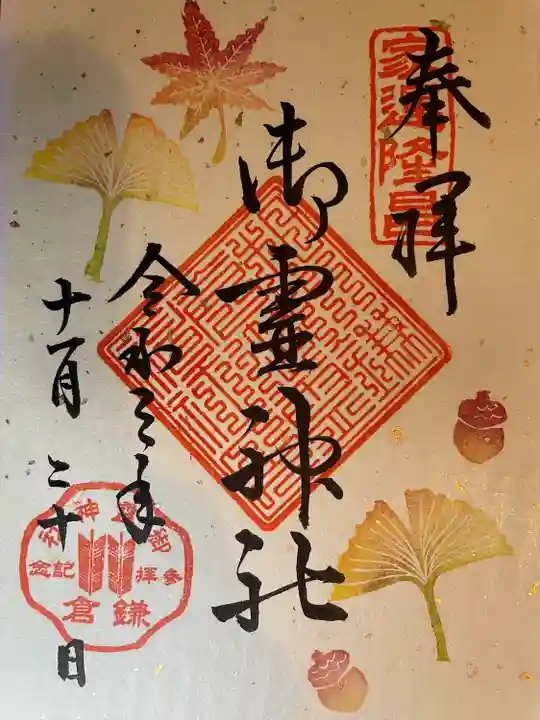 奉拝
家運隆昌
御霊神社
令和三年
十一月二十日
御霊神社
参拝記念
鎌倉